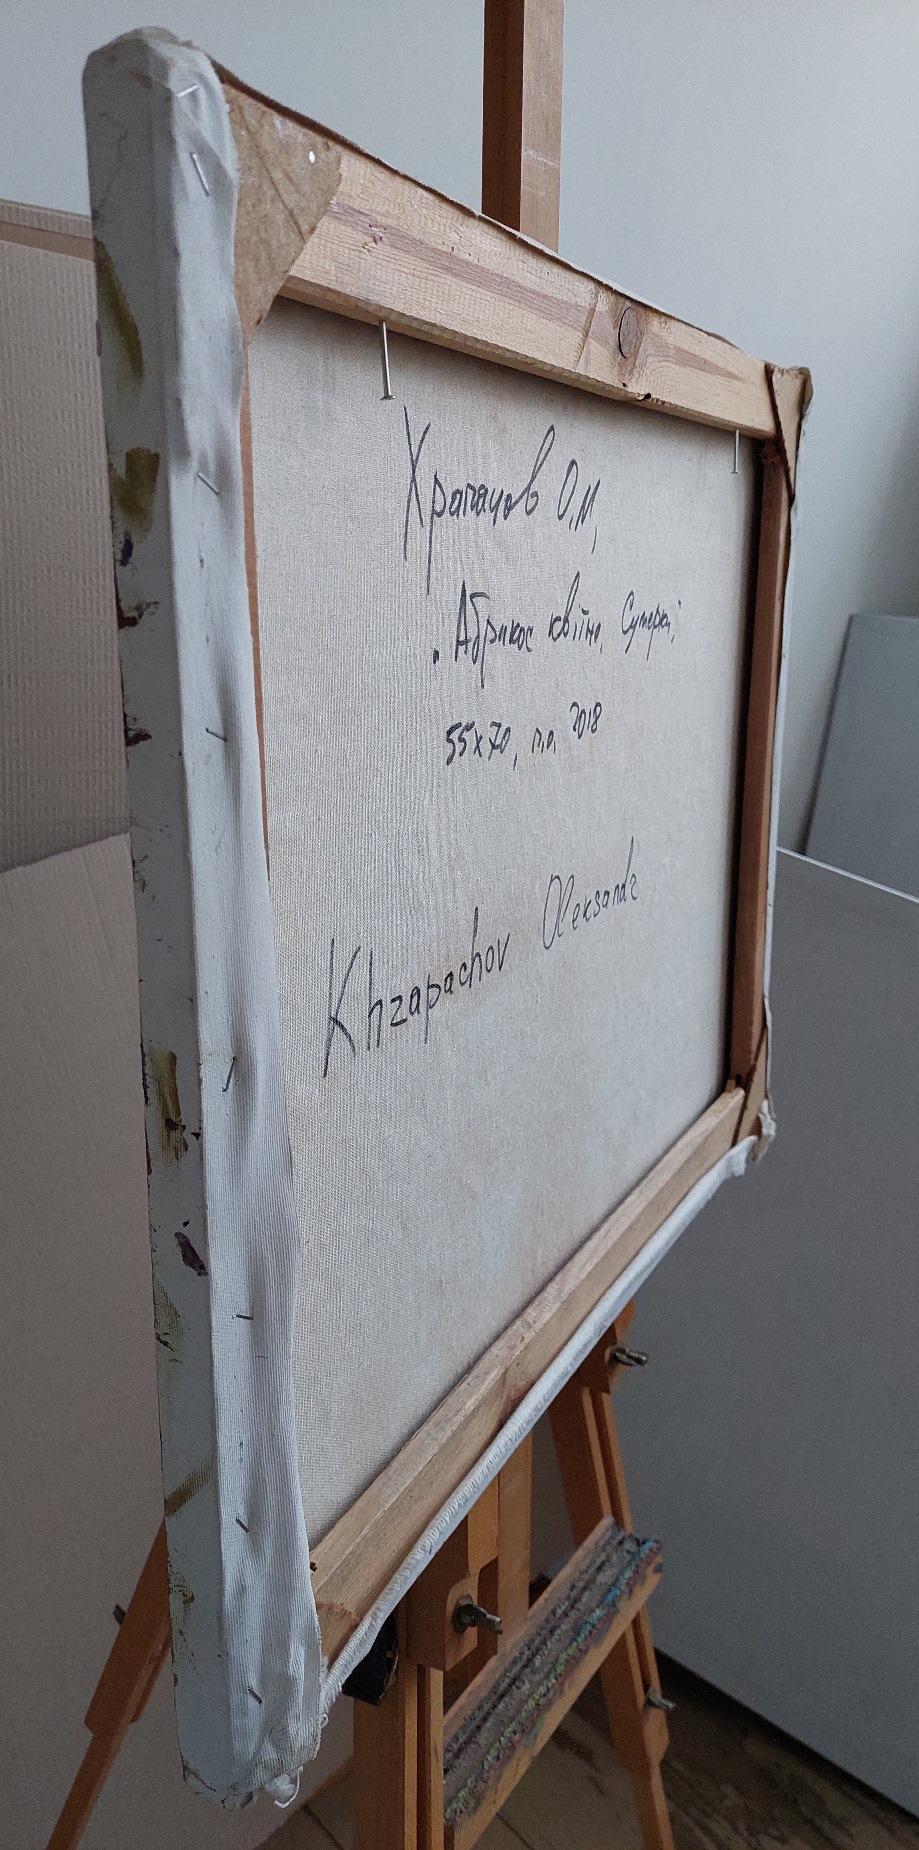 Храпачов О.М.
"Абрикос квітне. Сутерки"
55x70, п.о. 2018
Khrapachov Oleksandr